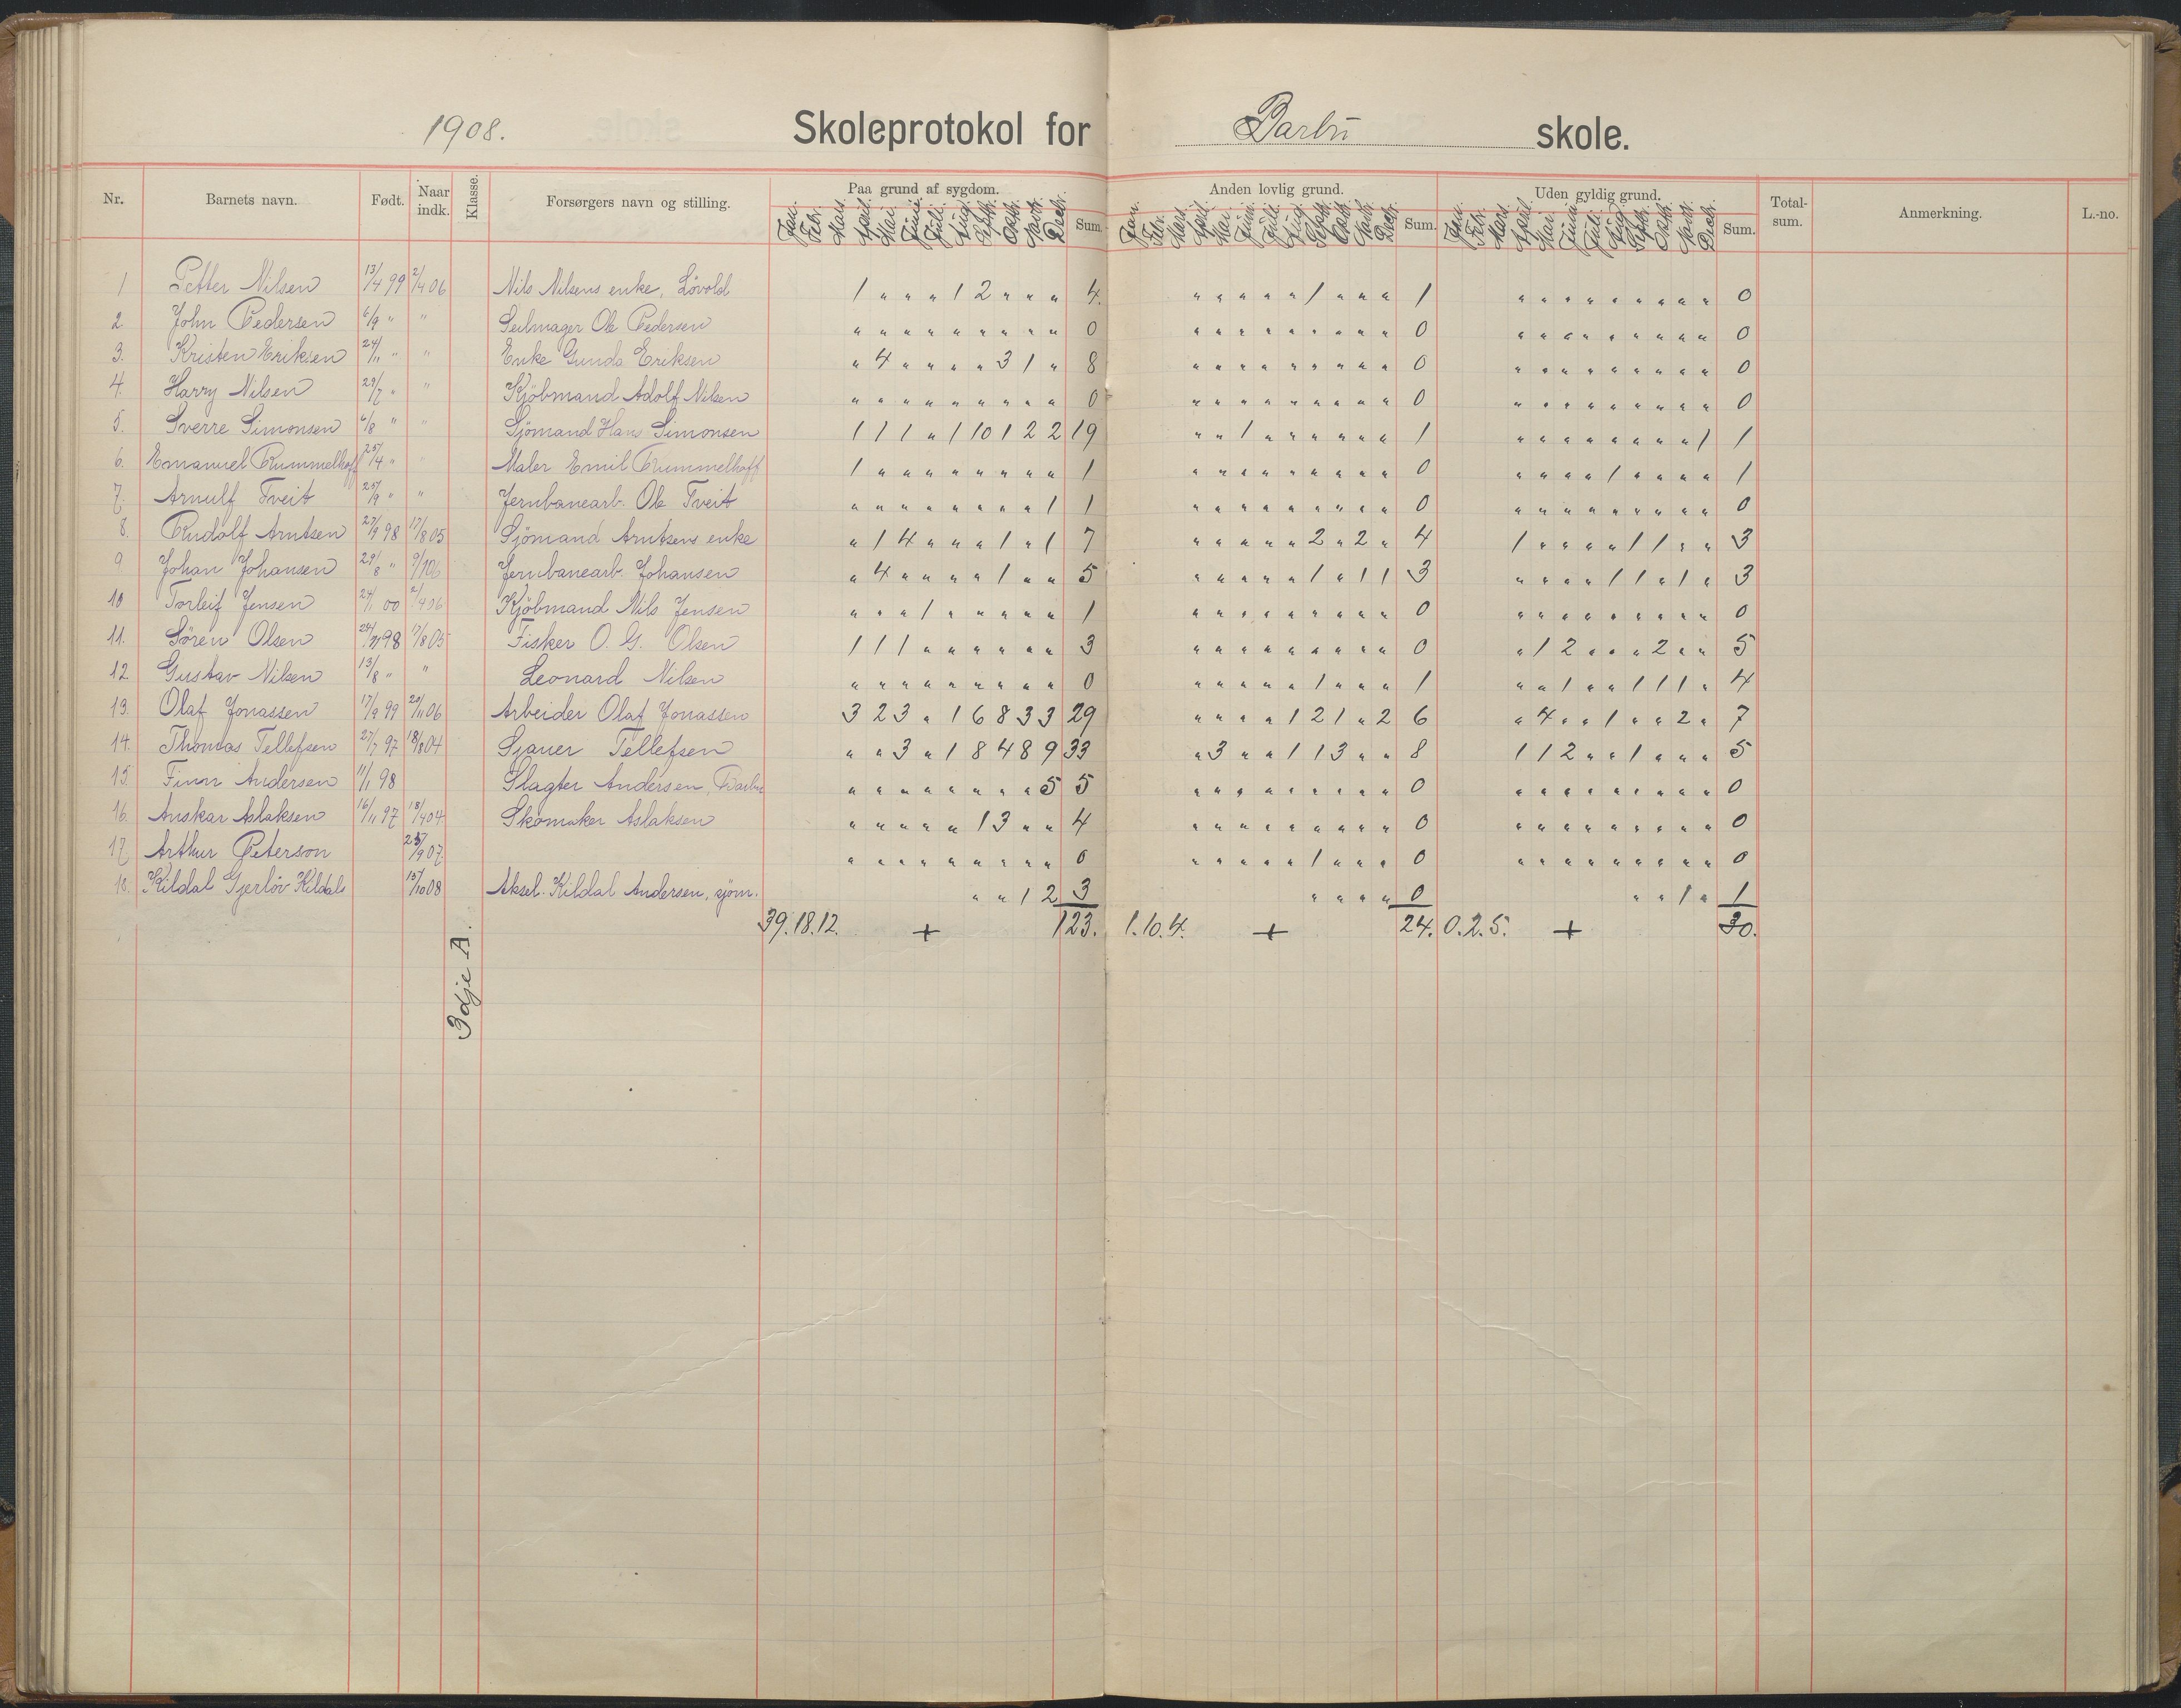 1908. Skoleprotokol for Barbu skole.
Nr. Barnets navn. Født. Naar indk. Klasse. Forsørgers navn og stilling. Paa grund af sygdom. Anden lovlig grund. Uden gyldig grund. Total-sum. Anmerkning. L.-no.
Jan. Febr. Mars. April. Mai. Juni. Juli. Aug. Septb. Oktb. Novb. Decb. Sum. Jan. Febr. Mars. April. Mai. Juni. Juli. Aug. Septb. Oktb. Novb. Decb. Sum. Jan. Febr. Mars. April. Mai. Juni. Juli. Aug. Septb. Oktb. Novb. Decb. Sum.
1 Petter Nilsen 13/4 99 2/4 06 Nils Nilsens enke, Lövold 1 " " " 1 2 " " " 4. " " " " " 1 " " " 1 " " " " " " " " " 0
2 John Pedersen 6/9 " " Seilmager Ole Pedersen " " " " " " " " " 0 " " " " " " " " " 0 " " " " " " " " " 0
3. Kristen Eriksen 24/11 " " Enke Gunda Eriksen " 4 " " " " 3 1 " 8 " " " " " " " " " 0 " " " " " " " " " 0
4. Harry Nilsen 29/7 " " Kjöbmand Adolf Nilsen " " " " " " " " " 0 " " " " " " " " " 0 " " " " " " " " " 0
5. Sverre Simonsen 6/8 " " Sjömand Hans Simonsen 1 1 1 " 1 10 1 2 2 19 " " 1 " " " " " " 1 " " " " " " " " 1 1
6. Emanuel Rummelhoff 25/4 " " Maler Emil Rummelhoff 1 " " " " " " " " 1 " " " " " " " " " 0 " " " " 1 " " " " 1
7. Arnulf Tveit 25/9 " " Jernbanearb. Ole Tveit " " " " " " " " 1 1 " " " " " " " " " 0 " " " " " " " " " 0
8. Rudolf Arntsen 27/9 98 17/8 05 Sjömand Arntsens enke " 1 4 " " " 1 " 1 7 " " " " " 2 " 2 " 4 1 " " " " 1 1 " " 3
9 Johan Johansen 29/8 " 9/1 06 Jernbanearb. Johansen " 4 " " " " 1 " " 5 " " " " " 1 " 1 1 3 " " " " 1 1 " 1 " 3
10 Torleif Jensen 24/1 00 2/4 06 Kjöbmand Nils Jensen " " " 1 " " " " " 1 " " " " " " " " " 0 " " " " " " " " " 0
11. Sören Olsen 24/11 98 17/8 05 Fisker O. G. Olsen 1 1 1 " " " " " " 3 " " " " " " " " " 0 " 1 2 " " " 2 " " 5
12 Gustav Nilsen 13/8 " " Leonard Nilsen " " " " " " " " " 0 " " " " " 1 " " " 1 " " 1 " " 1 1 1 " 4
13. Olaf Jonassen 17/9 99 20/11 06 Arbeider Olaf Jonassen 3 2 3 " 1 6 8 3 3 29 " " " " 1 2 1 " 2 6 " 4 " " 1 " " 2 " 7
14. Thomas Tellefsen 27/7 97 18/8 04 Sjauer Tellefsen " " 3 " 1 8 4 8 9 33 " 3 " " 1 1 3 " " 8 1 1 2 " " 1 " " " 5
15. Finn Andersen 11/1 98 Slagter Andersen, Barbu " " " " " " " " 5 5 " " " " " " " " " 0 " " " " " " " " " 0
16. Anskar Aslaksen 16/11 97 18/4 04 Skomaker Aslaksen " " " " " 1 3 " " 4 " " " " " " " " " 0 " " " " " " " " " 0
17 Arthur Peterson 23/9 07 " " " " " " " " " 0 " " " " " 1 " " " 0 " " " " " " " " " 0
18. Kildal Gjerlöv Kildal 15/10 08 Aksel Kildal Andersen, sjöm. " " 1 2 3 " " " " 0 " " 1 " 1
39. 18. 12. + 123. 1. 10. 4. + 24. 0. 2. 5. + 30.
3dje A.